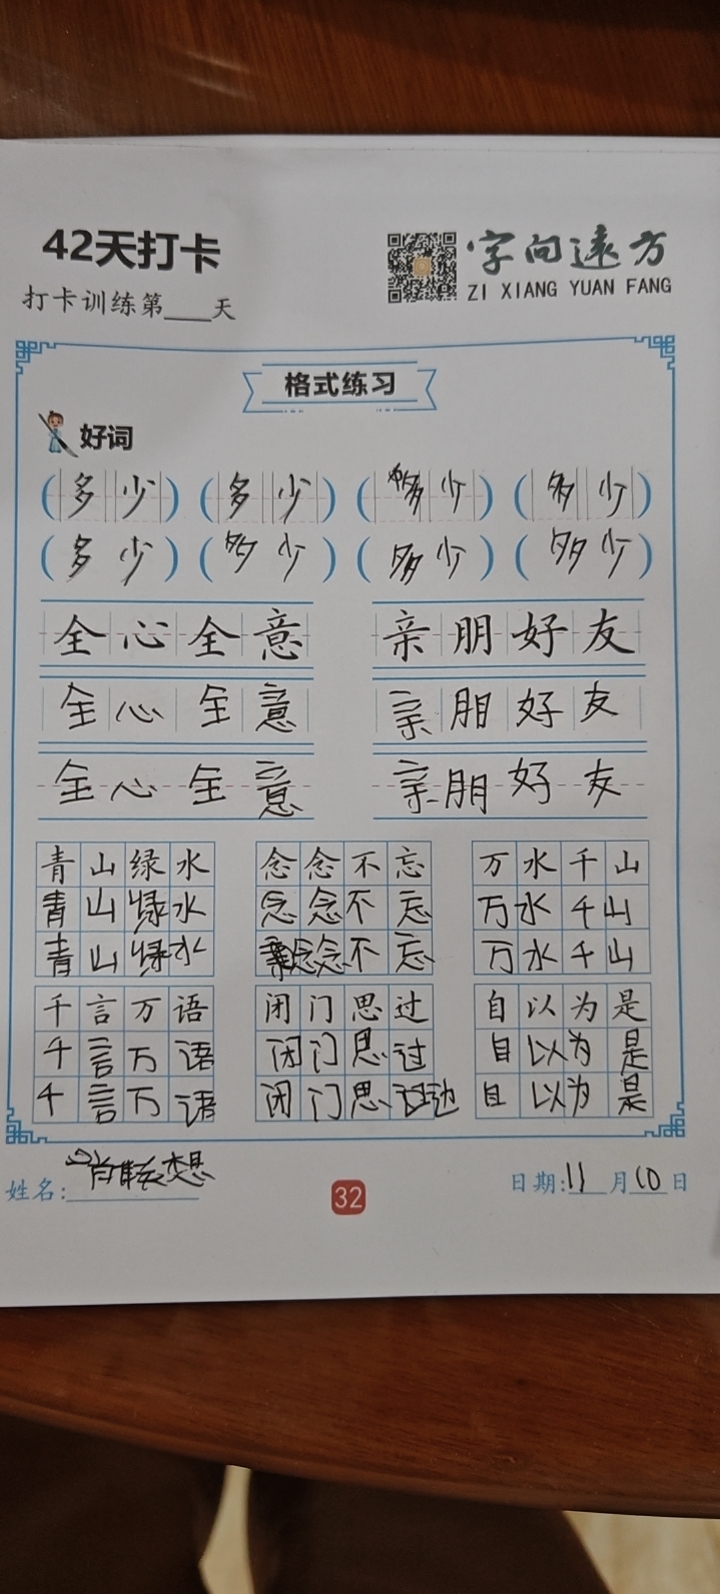 42天打卡
字向远方
打卡训练第___天
ZI XIANG YUAN FANG
格式练习
好词
(多少) (多少) (多少) (多少)
(多少) (多少) (多少) (多少)
全心全意 亲朋好友
全心全意 亲朋好友
全心全意 亲朋好友
青山绿水 念念不忘 万水千山
青山绿水 念念不忘 万水千山
青山绿水 念念不忘 万水千山
千言万语 闭门思过 自以为是
千言万语 闭门思过 自以为是
千言万语 闭门思过 自以为是
姓名: 日期:11月10日
32